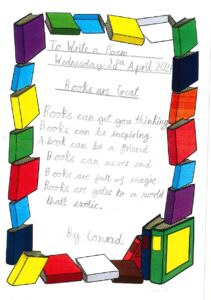 To Write a Poem
Wednesday 22nd April 2020
Books are Great
Books can get you thinking
Books can be inspiring
A book can be a friend
Books can never end
Books are full of magic
Books are gates to a world
that's exotic.
By Conrad